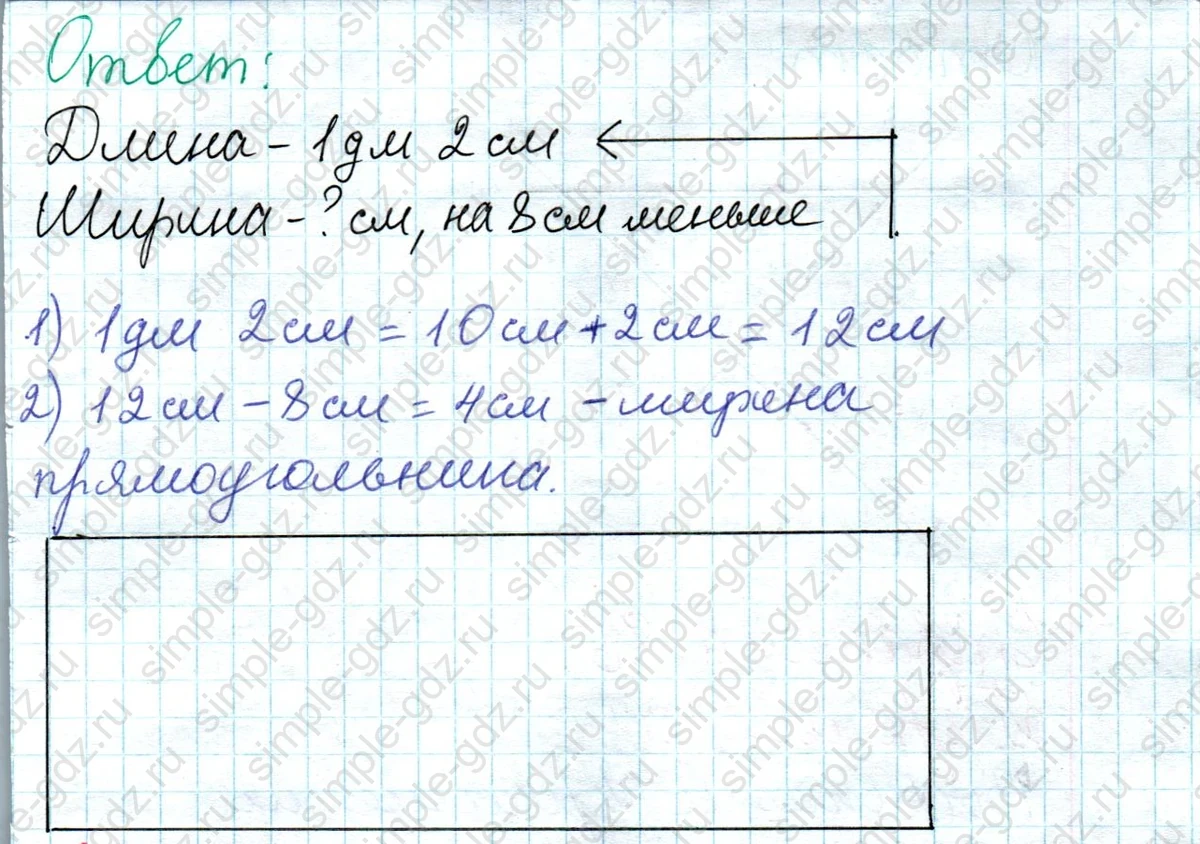 Ответ:
Длина - 1 дм 2 см
Ширина - ? см, на 8 см меньше
1) 1 дм 2 см = 10 см + 2 см = 12 см
2) 12 см - 8 см = 4 см - ширина
прямоугольника.
simple-gdz.ru